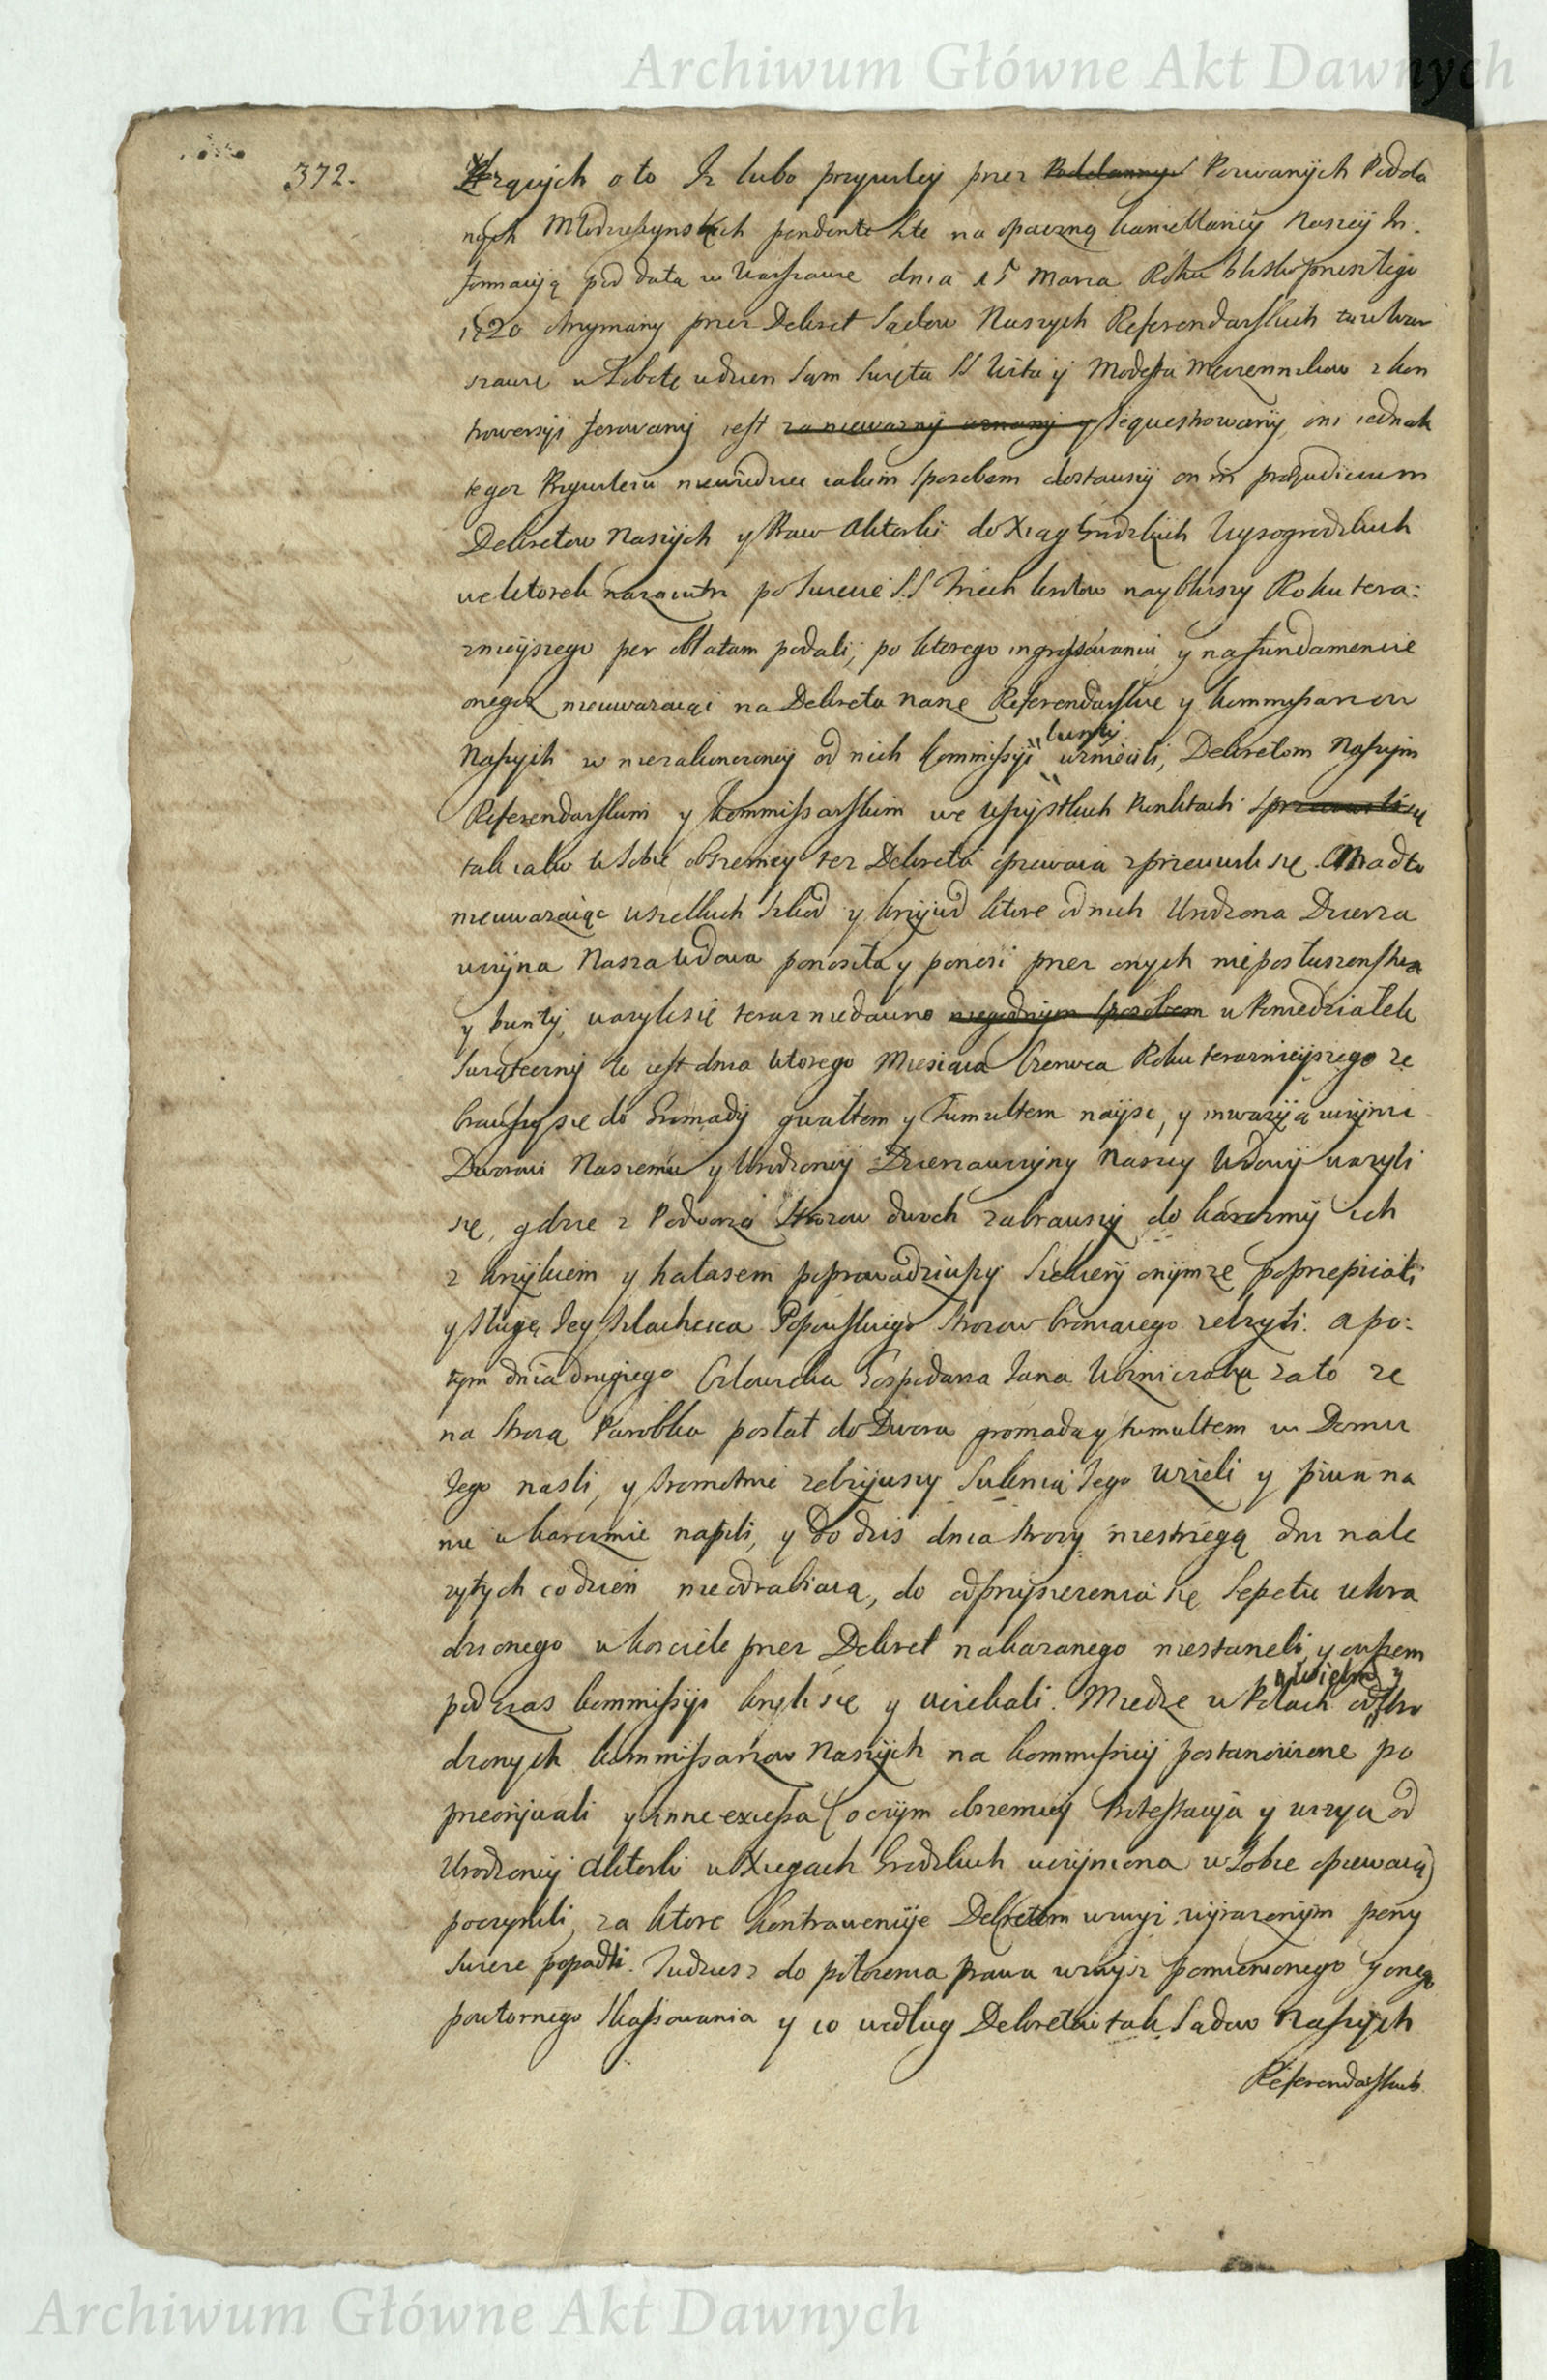 Archiwum Główne Akt Dawnych
372.
rących o to Iz lubo przywiley przez Poddannych Pozwanych Podda
nych Młodzieszynskich pendente lite na opaczną kancellaryi Naszey In-
formacyą pod datą w Warszawie dnia 15 Marca Roku blisko przeszłego
1720 otrzymany przez Dekret Sądow Naszych Referendarskich tu w War
szawie w Sobotę w dzien Sam Swięta SS Wita y Modesta Męczennikow z kon
trowersyi ferowany iest za niewazny uznany y sequestrowany, oni iednak
tegoz Przywileiu niewiedziec iakim sposobem dostawszy on in præjudicium
Dekretow Naszych y Praw Aktorki do Xiąg Grodzkich Wysogrodzkich
we Wtorek nazaiutrz po Swięcie SS Trzech Krolow naybliszy Roku tera-
znieyszego per oblatam podali, po ktorego ingrossowaniu y na fundamencie
onegoz nieuwazaiąc na Dekreta nasze Referendarskie y Kommissarzow
Naszych w niezakonczoney od nich kommissyi bunty wzniecili, Dekretom Naszym
Referendarskim y Kommissarskim we wszystkich Punktach sprzeciwili się
tak iako w Sobie obszerniey tez Dekreta opiewaią zprzeciwili się. A nadto
nieuwazaiąc wszelkich szkod y krzywd ktore od nich Urodzona Dzierza
wczyna Nasza Wdowa ponosiła y ponosi przez onych nieposłuszenstwa
y bunty, wazyli się teraz niedawno niegodnym sposobem w Poniedziałek
Swiąteczny to iest dnia wtorego Miesiąca Czerwca Roku teraznieyszego ze
brawszy się do Gromady gwałtem y Tumultem nayść, y inwazyią uczynic
Dworowi Naszemu y Urodzoney Dzierzawczyny Naszey Wdowy wazyli
się, gdzie z Podworza Strozow dwoch zabrawszy do karczmy ich
z krzykiem y hałasem poprowadziwszy Siekiery onymze poprzepiiali
y Sługę Jey Szlachcica Popowskiego Strozow broniącego zelzyli. a po-
tym dnia drugiego Człowieka Gospodarza Jana Wozniczakę za to ze
na Strozą Parobka posłał do Dwora gromadą y tumultem w Domu
Jego naszli, y sromotnie zelzywszy Suknią Jego Wzieli y piwa na
nie w karczmie napili, y do dzis dnia strozy niestrzegą dni nale
zytych co dzień nieodrabiaią, do odprzysiezenia się Sepetu ukra
dzionego w Kosciele przez Dekret nakazanego niestaneli, y owszem
pod czas kommissyi kryli się y uciekali. Miedze w Polach od Wielm y Uro
dzonych Kommissarzow Naszych na kommissyi postanowione po
przeorywali y inne excessa (o czym obszerniey Protestacyia y wizya od
Urodzoney Aktorki w Xięgach Grodzkich uczyniona w Sobie opiewaią)
poczynili, za ktore kontrawencyie Dekretem wyzey wyrazonym peny
Swieze popadli. Tudziesz do połozenia Prawa wyzysz pomienionego y onego
powtornego skassowania y co według Dekretow tak Sądow Naszych
Referendarskich
Archiwum Główne Akt Dawnych